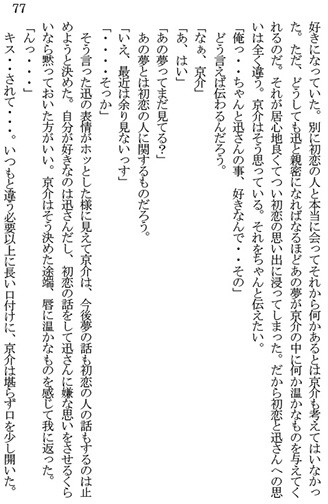 77
好きになっていた。別に初恋の人と本当に会ってそれから何かあるとは京介も考えてはいなかっ
た。ただ、どうしても迅と親密になればなるほどあの夢が京介の中に何か温かなものを与えてく
れるのだ。それが居心地良くてつい初恋の思い出に浸ってしまった。だから初恋と迅さんへの思
いは全く違う。京介はそう思っている。それをちゃんと伝えたい。
「俺っ・・ちゃんと迅さんの事、好きなんで・・その」
どう言えば伝わるんだろう。
「なぁ、京介」
「あ、はい」
「あの夢ってまだ見てる？」
あの夢とは初恋の人に関するものだろう。
「いえ、最近は余り見ないっす」
「・・・そっか」
そう言った迅の表情がホッとした様に見えて京介は、今後夢の話も初恋の人の話もするのは止
めようと決めた。自分が好きなのは迅さんだし、初恋の話をして迅さんに嫌な思いをさせるくら
いなら黙っておいた方がいい。京介はそう決めた途端、唇に温かなものを感じて我に返った。
「んっ・・・」
キス・・されて・・・。いつもと違う必要以上に長い口付けに、京介は堪らず口を少し開いた。